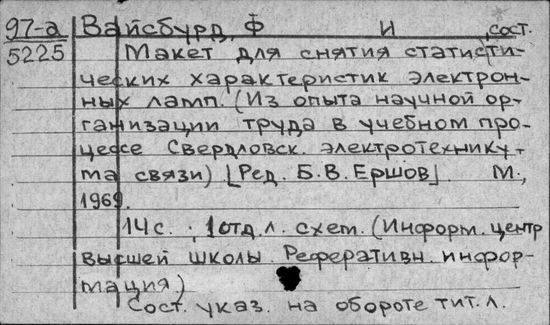 97-а Вайсбурд, Ф И , сост.
5225 Макет для снятия статисти-
ческих характеристик электрон-
ных ламп. (Из опыта научной ор-
ганизации труда в учебном про-
цессе Свердловск. электротехнику-
ма связи) [Ред. Б.В. Ершов]. М.,
1969.
14 с. , 1 отд. л. схем. (Информ. центр
высшей школы. Реферативн. инфор-
мация)
Сост. указ. на обороте тит. л.